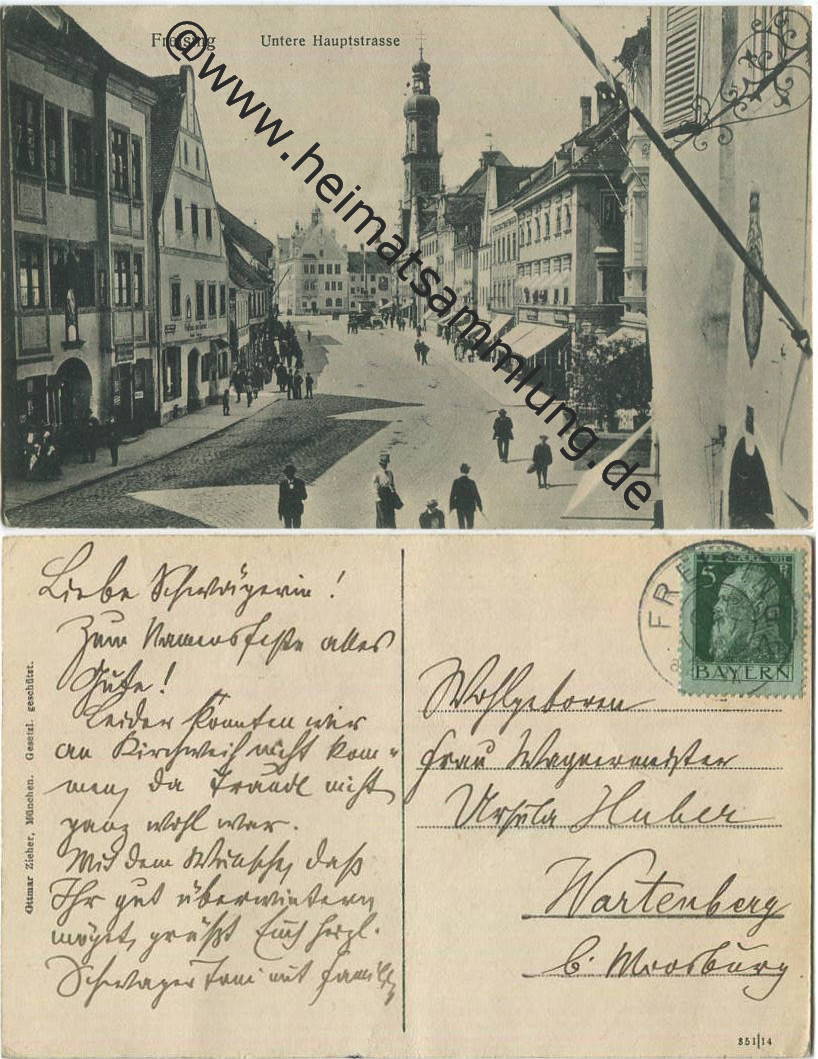 Freising Untere Hauptstrasse
@www.heimatsammlung.de
Liebe Schwägerin!
Zum Namensfeste alles
Gute!
Leider konnten wir
an Kirchweih nicht kom=
men, da Traudl nicht
ganz wohl war.
Mit dem Wunsche, daß
Ihr gut überwintern
möget, grüßt Euch herzl.
Schwager Toni mit Familie
Ottmar Zieher, München. Gesetzl. geschützt.
FREISING
5
BAYERN
Wohlgeboren
Frau Wagnermeister
Ursula Huber
Wartenberg
b. Moosburg
351|14